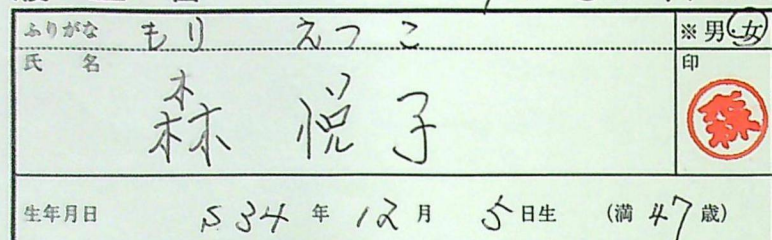 ふりがな もり えつこ ※男・女
氏名 森 悦子 印
森
生年月日 S34年12月5日生 (満47歳)